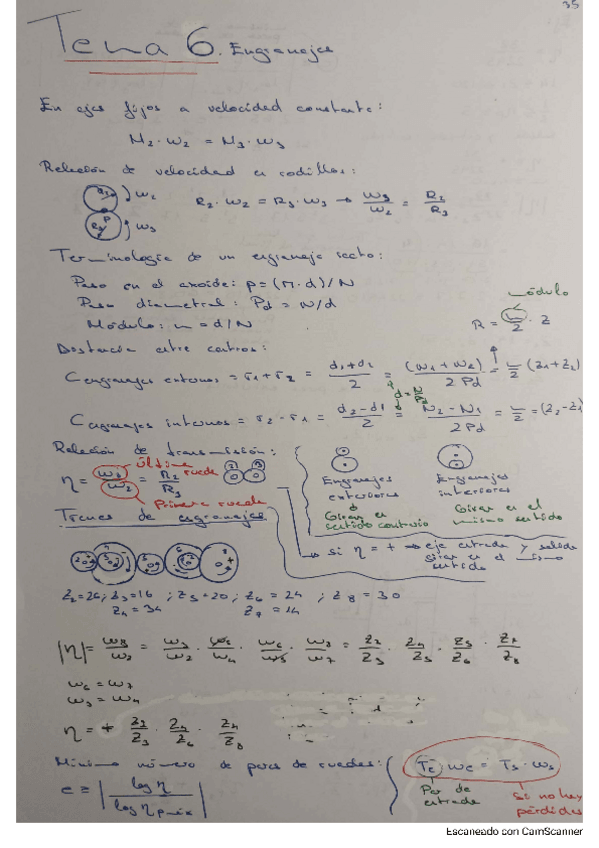 35
Tema 6. Engranajes
En ejes fijos a velocidad constante:
M₂ · ω₂ = M₃ · ω₃
Relación de velocidad en rodillos:
R₂ · ω₂ = R₃ · ω₃ → ω₃/ω₂ = R₂/R₃
ω₂
ω₃
Terminología de un engranaje recto:
Paso en el axoide: p = (π · d)/N
Paso diametral: Pd = N/d
Módulo: m = d/N
módulo
R = m/2 · Z
Distancia entre centros:
C engranajes externos = r₁ + r₂ = d₁+d₂/2 = (N₁ + N₂)/2Pd = m/2 (Z₁+Z₂)
d = N/Pd
C engranajes internos = r₂ - r₁ = d₂-d₁/2 = N₂ - N₁/2Pd = m/2 = (Z₂-Z₁)
Relación de transmisión:
η = ω₃/ω₂ = R₂/R₃
Última rueda
Primera rueda
Engranajes exteriores
Giran en sentido contrario
Engranajes interiores
Giran en el mismo sentido
Trenes de engranajes
→ si η = + → eje entrada y salida
giran en el mismo
sentido
Z₂=26; Z₃=16 ; Z₅=20; Z₆ = 24 ; Z₈ = 30
Z₄ = 34 Z₇ = 14
|η| = ω₈/ω₂ = ω₃/ω₂ · ω₅/ω₄ · ω₆/ω₅ · ω₈/ω₇ = Z₂/Z₃ · Z₄/Z₅ · Z₅/Z₆ · Z₇/Z₈
ω₆ = ω₇
ω₃ = ω₄
η = + Z₂/Z₃ · Z₄/Z₆ · Z₇/Z₈
Mínimo número de pares de ruedas:
e ≥ | log η / log η máx |
Te · ωe = Ts · ωs
Par de entrada
Si no hay pérdidas
Escaneado con CamScanner